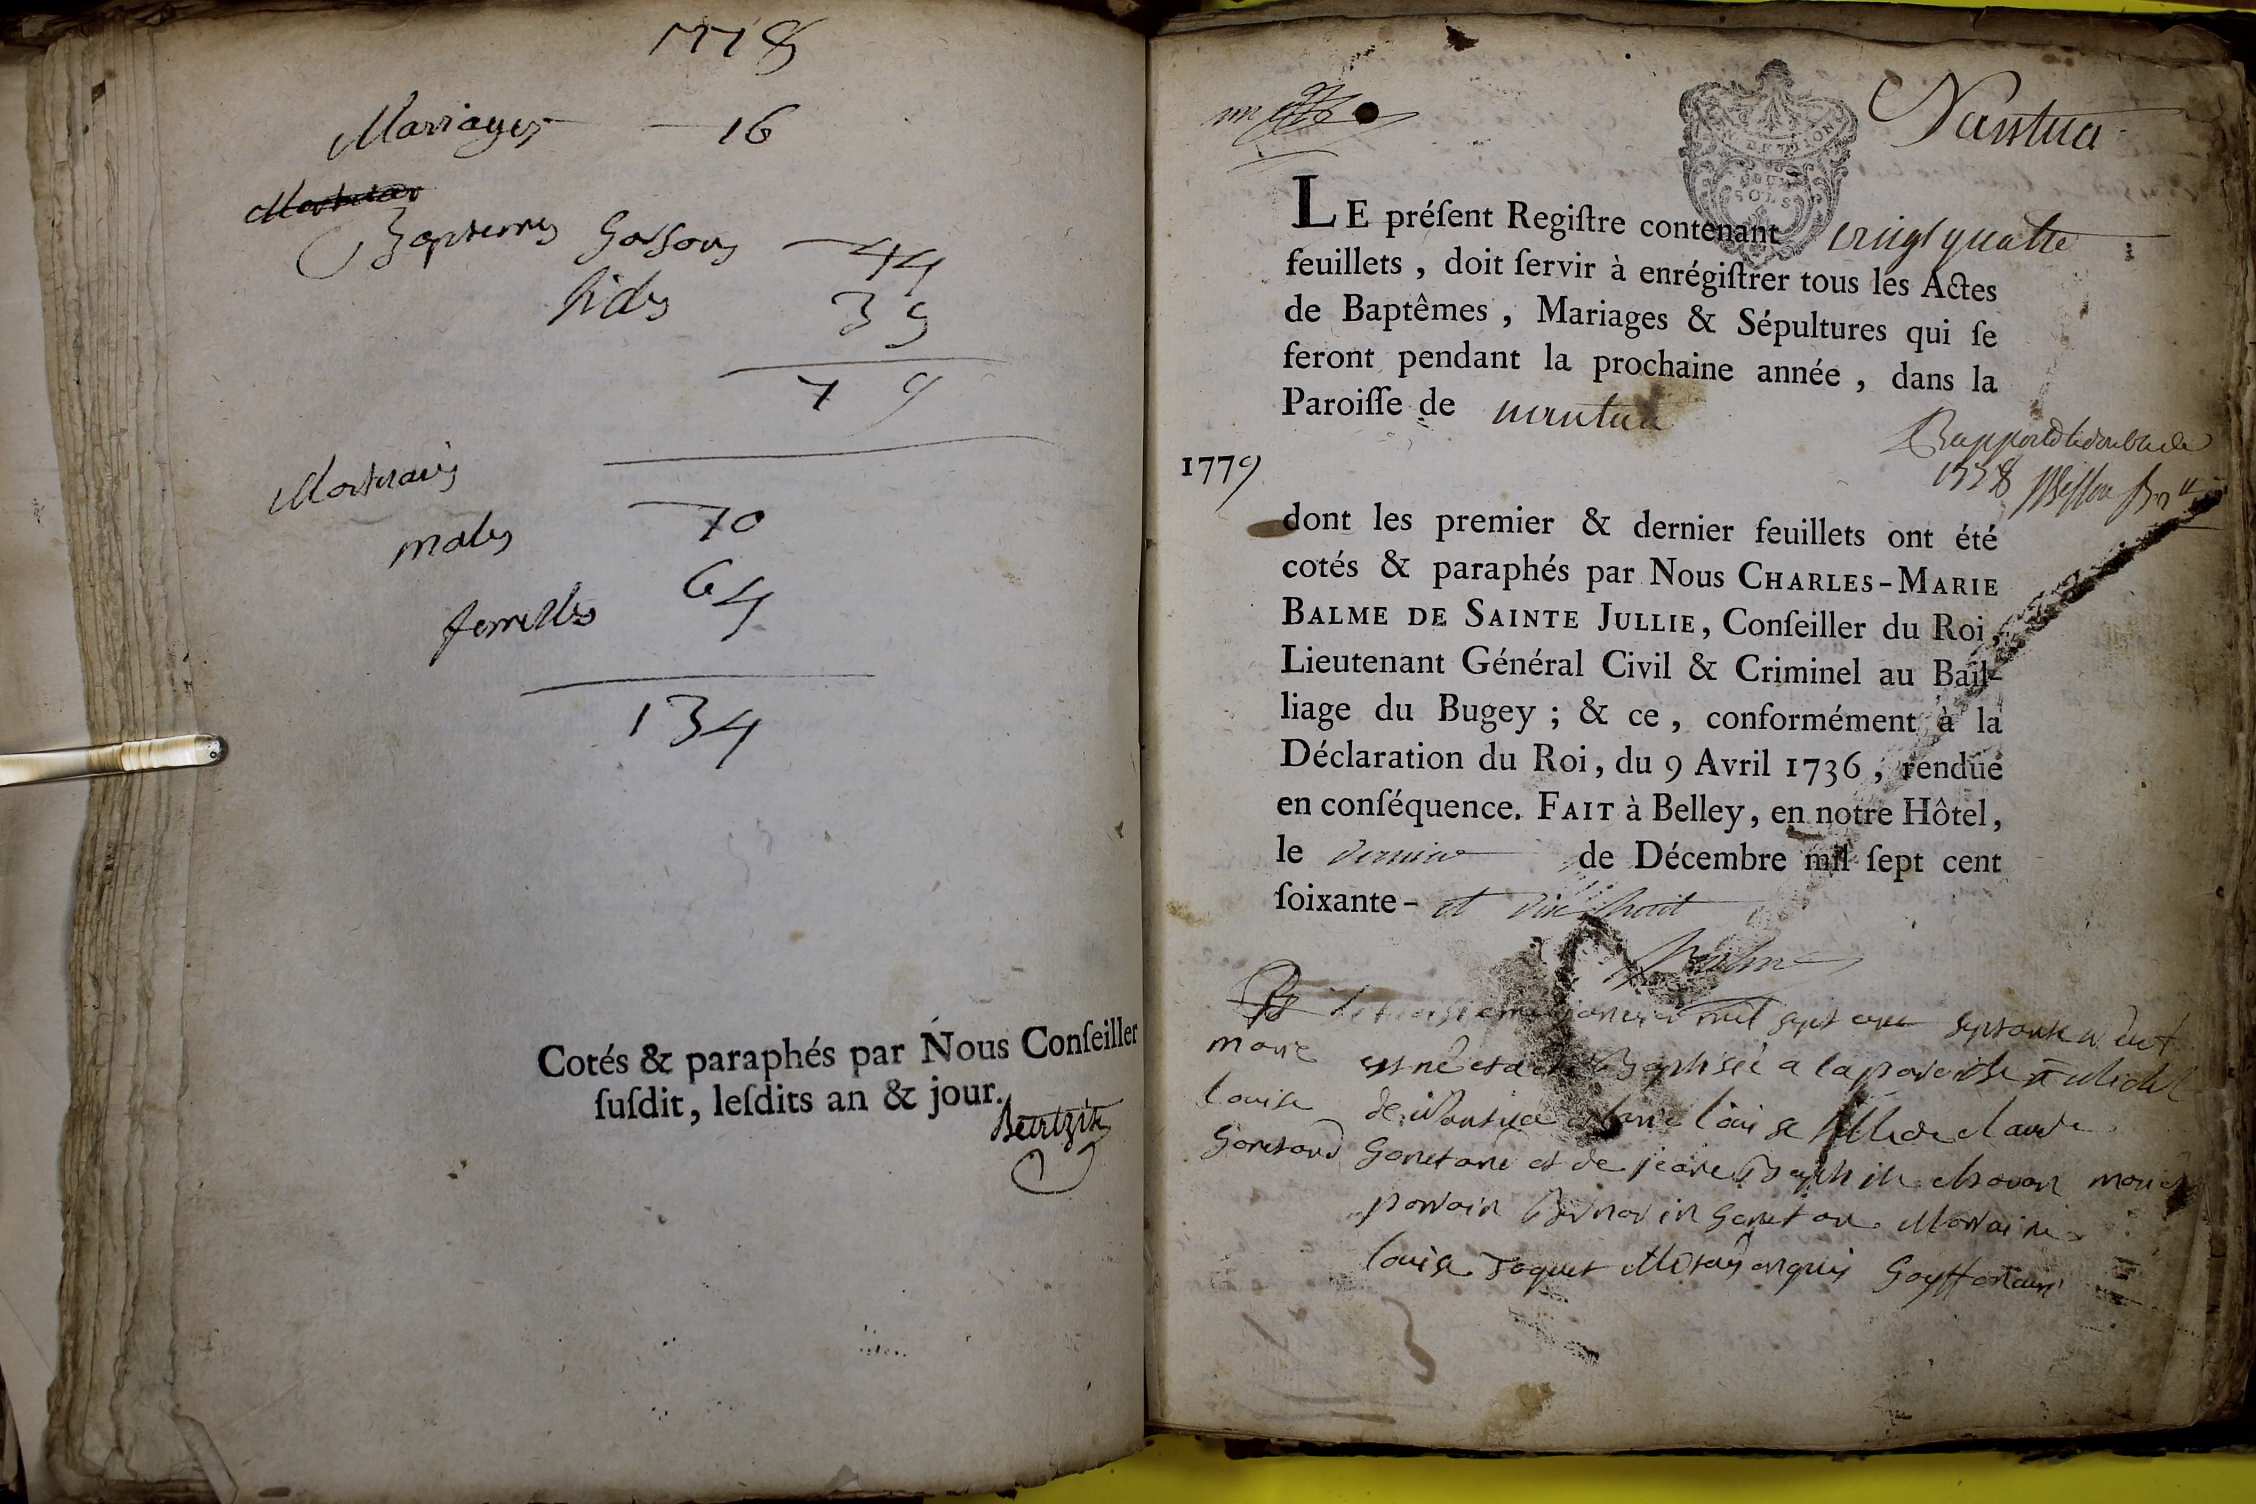 1778
Mariages 16
Mortuair
Baptemes Garsons 44
filles 35
79
Mortuairs
males 70
femelles 64
134
Cotés & paraphés par Nous Conſeiller
ſuſdit, leſdits an & jour.
Nantua
SOLS
LE préſent Regiſtre contenant vingt quatre
feuillets, doit ſervir à enrégiſtrer tous les Actes
de Baptêmes, Mariages & Sépultures qui ſe
feront pendant la prochaine année, dans la
Paroiſſe de nantua
Rapporté le double de
1778
1779
dont les premier & dernier feuillets ont été
cotés & paraphés par Nous CHARLES-MARIE
BALME DE SAINTE JULLIE, Conſeiller du Roi,
Lieutenant Général Civil & Criminel au Bail-
liage du Bugey; & ce, conformément à la
Déclaration du Roi, du 9 Avril 1736, rendue
en conſéquence. FAIT à Belley, en notre Hôtel,
le dernier de Décembre mil ſept cent
ſoixante- et dix huit
Balme
janvier mil sept cent septante neuf
marie est né et a été Baptisée a la paroisse
louise de Nantua marie louise fille de claude
Goretand et de jeane mariés
parrain Marraine
louise